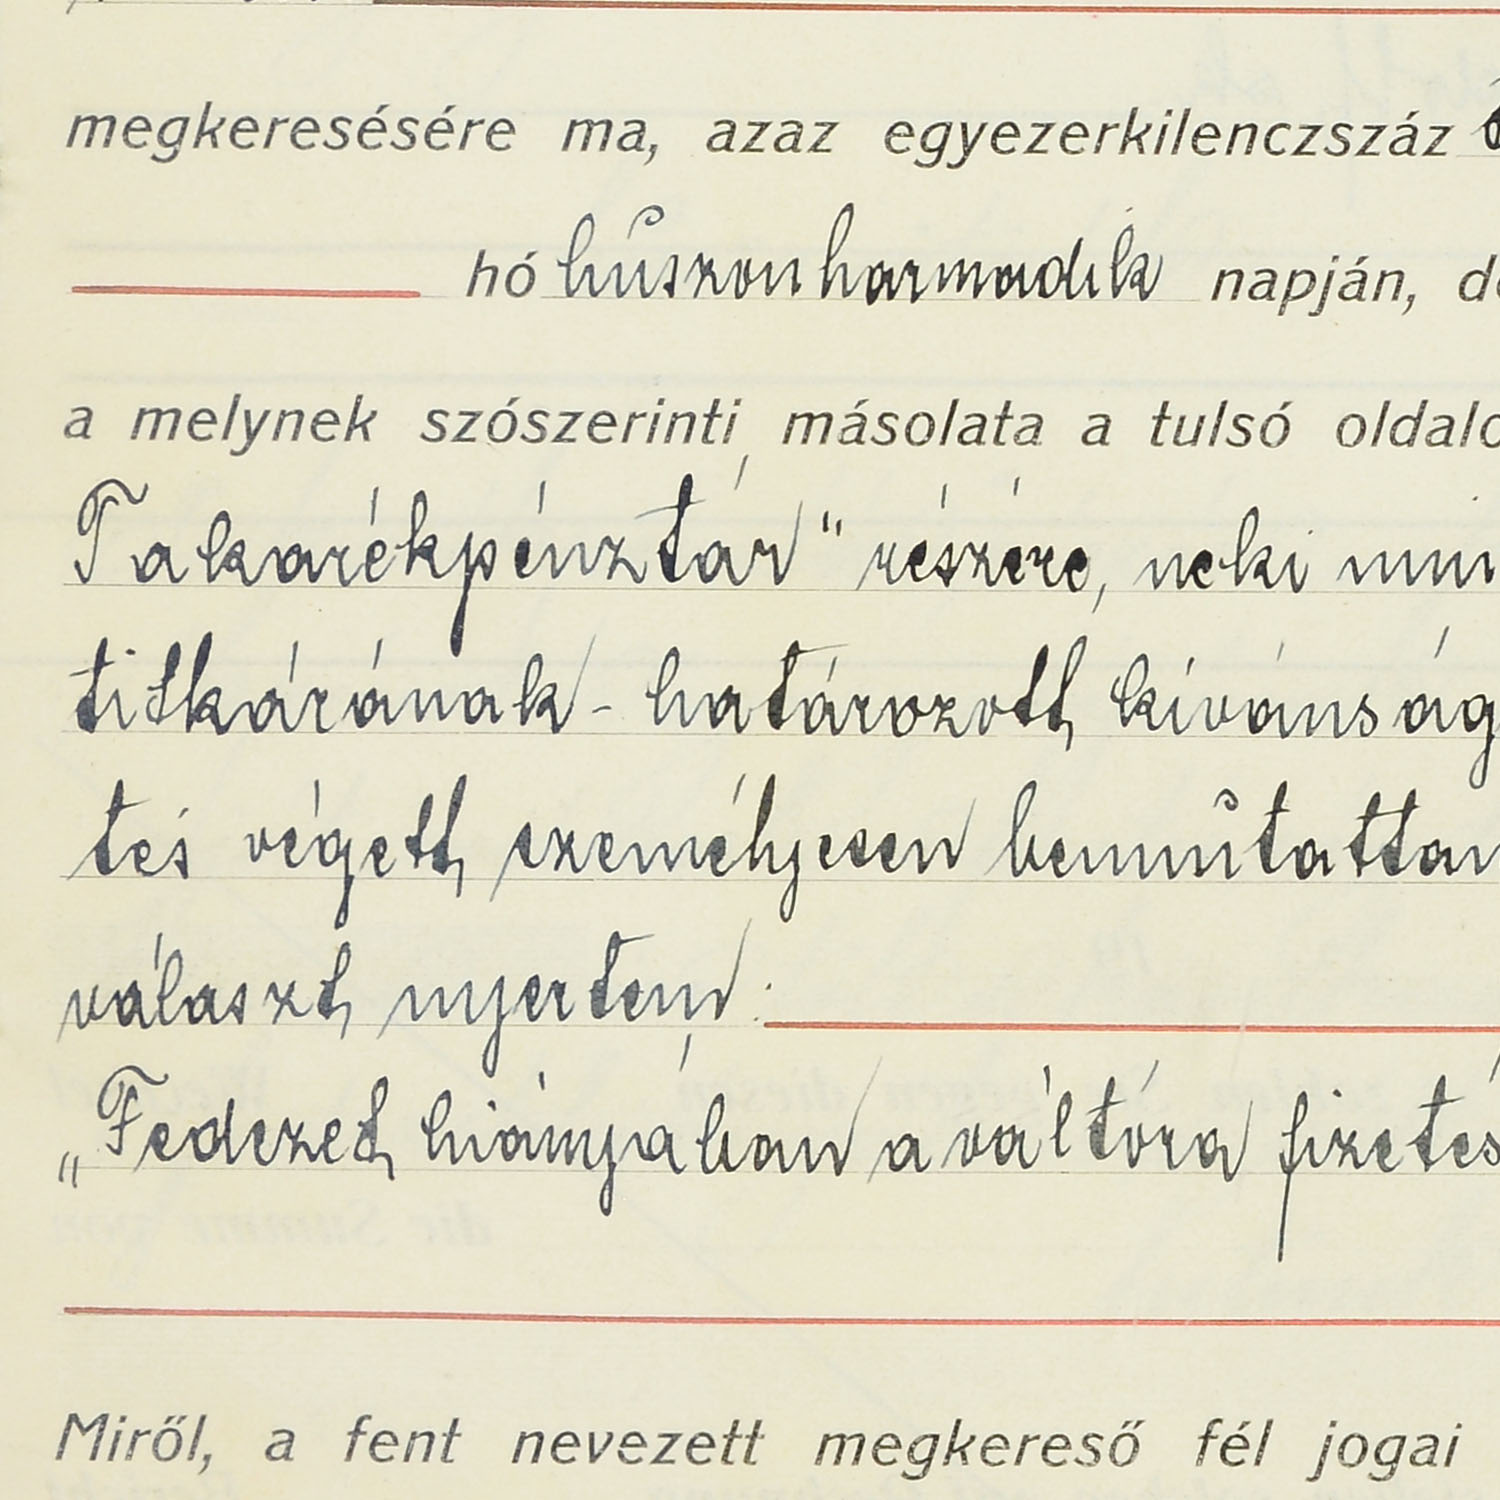 megkeresésére ma, azaz egyezerkilenczszáz
hó huszonharmadik napján, de
a melynek szószerinti másolata a tulsó oldalo
Takarékpénztár" részére, neki min
titkárának - határozott kívánság
tés végett személyesen bemutattam
választ nyertem:
„Fedezet hiányában a váltóra fizetés
Miről, a fent nevezett megkereső fél jogai